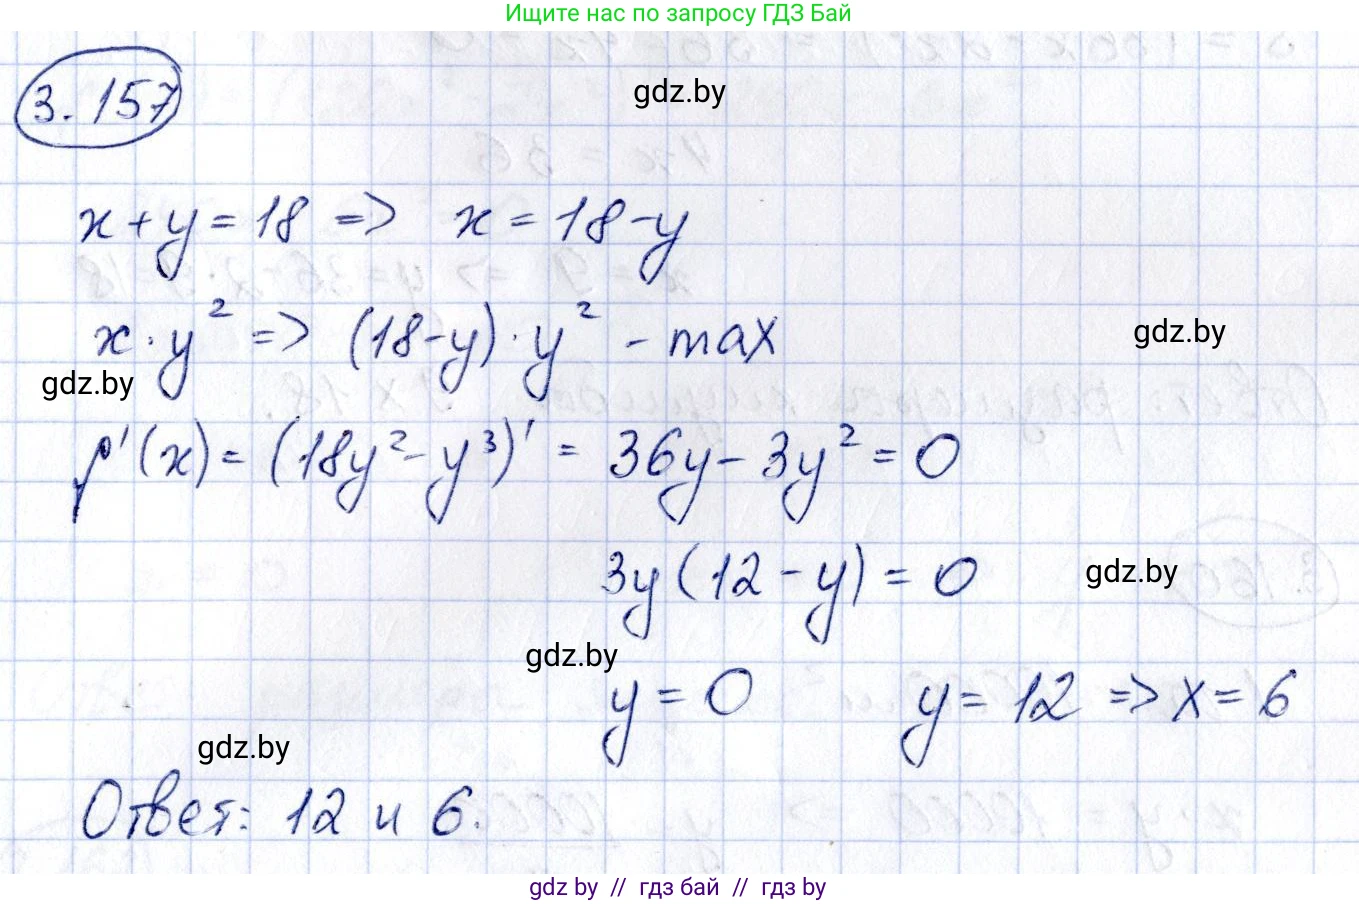 Ищите нас по запросу ГДЗ Бай
3.157
gdz.by
x+y=18 => x=18-y
x·y² => (18-y)·y² - max
gdz.by
gdz.by
f'(x)= (18y²-y³)' = 36y-3y²=0
3y(12-y)=0
gdz.by
gdz.by
y=0 y=12 => x=6
gdz.by
Ответ: 12 и 6.
gdz by // гдз бай // гдз by